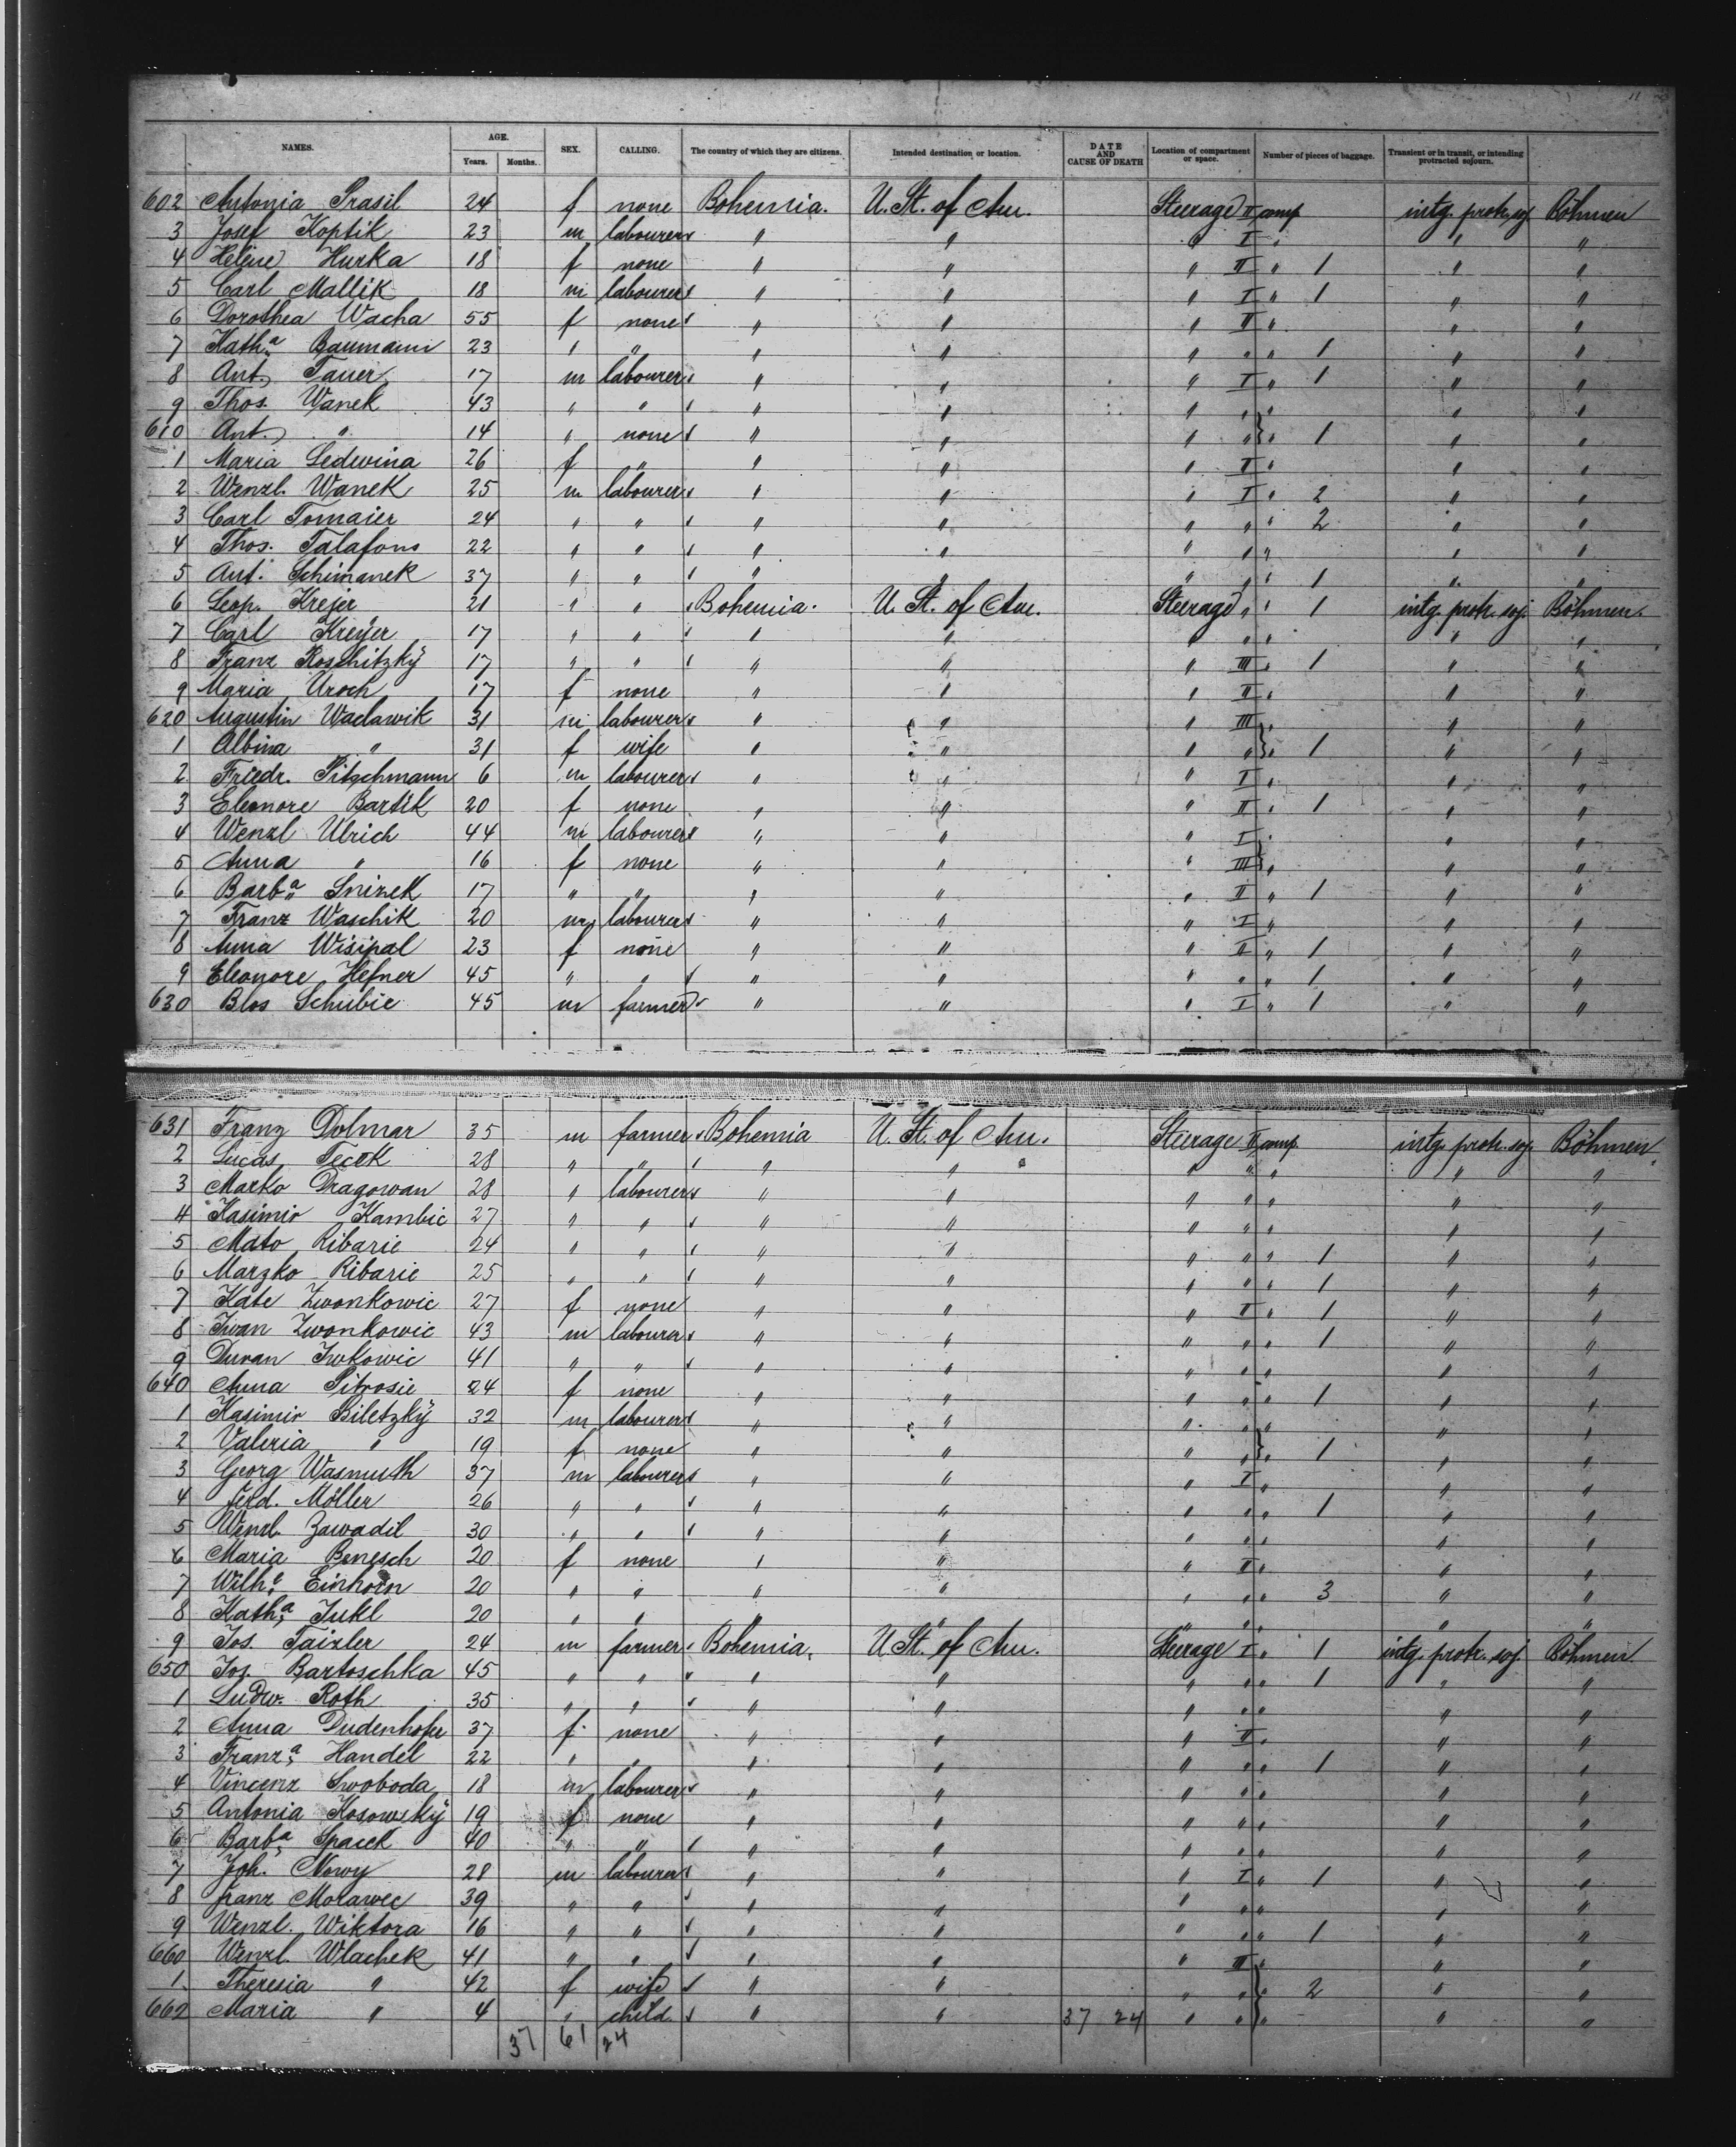 11
NAMES. AGE. Years. Months. SEX. CALLING. The country of which they are citizens. Intended destination or location. DATE AND CAUSE OF DEATH Location of compartment or space. Number of pieces of baggage. Transient or in transit, or intending protracted sojourn.
602 Antonia Prasil 24 f none Bohemia. U. St. of Am. Steerage II comp intg. protr. soj. Böhmen
3 Josef Koptik 23 m labourer " " " I " " "
4 Helene Hurka 18 f none " " " II " 1 " "
5 Carl Mallik 18 m labourer " " " I " 1 " "
6 Dorothea Wacha 55 f none " " " II " " "
7 Kath.a Baumann 23 " " " " " " " 1 " "
8 Ant. Tauer 17 m labourer " " " I " 1 " "
9 Thos. Wanek 43 " " " " " " " " "
610 Ant. " 14 " none " " " " " 1 " "
1 Maria Ledwina 26 f " " " " II " " "
2 Wenzl. Wanek 25 m labourer " " " I " 2 " "
3 Carl Tomaier 24 " " " " " " " 2 " "
4 Thos. Talafons 22 " " " " " " " " "
5 Ant. Schimanek 37 " " " " " " " 1 " "
6 Leop. Krejer 21 " " Bohemia. U. St. of Am. Steerage " " 1 intg. protr. soj. Böhmen.
7 Carl Kreyer 17 " " " " " " " " "
8 Franz Roschitzký 17 " " " " " III " 1 " "
9 Maria Uroch 17 f none " " " II " " "
620 Augustin Waclawik 31 m labourer " " " III " " "
1 Albina " 31 f wife " " " " " 1 " "
2 Friedr. Pitschmann 6 m labourer " " " I " " "
3 Eleonore Bartik 20 f none " " " II " 1 " "
4 Wenzl Ulrich 44 m labourer " " " I " " "
5 Anna " 16 f none " " " III " " "
6 Barb.a Snizek 17 " " " " " II " 1 " "
7 Franz Waschik 20 m labourer " " " I " " "
8 Anna Wisipal 23 f none " " " II " 1 " "
9 Eleonore Hefner 45 " " " " " " " 1 " "
630 Blos Schubic 45 m farmer " " " I " 1 " "
631 Franz Dolmar 35 m farmer Bohemia U. St. of Am. Steerage II comp intg. protr. soj. Böhmen
2 Lucas 28 " " " " " " " " "
3 Marko Dragowan 28 " labourer " " " " " " "
4 Kasimir Kambic 27 " " " " " " " " "
5 Mato Ribaric 24 " " " " " " " 1 " "
6 Marzko Ribaric 25 " " " " " " " 1 " "
7 Kate Zwonkowic 27 f none " " " II " 1 " "
8 Iwan Zwonkowic 43 m labourer " " " " " 1 " "
9 Duran Iwkowic 41 " " " " " " " " "
640 Anna Pitrosie 24 f none " " " " " 1 " "
1 Kasimir Biletzký 32 m labourer " " " " " " "
2 Valeria " 19 f none " " " " " 1 " "
3 Georg Wasmuth 37 m labourer " " " I " " "
4 Ferd. Möller 26 " " " " " " " 1 " "
5 Wenzl. Zawadil 30 " " " " " " " " "
6 Maria Benesch 20 f none " " " II " " "
7 Wilh.e Einhorn 20 " " " " " " " 3 " "
8 Kath.a Jukl 20 " " " " " " " " "
9 Jos. Taizler 24 m farmer Bohemia. U. St. of Am. Steerage I " 1 intg. protr. soj. Böhmen
650 Jos. Bartoschka 45 " " " " " " " 1 " "
1 Ludw. Roth 35 " " " " " " " " "
2 Anna Dudenhofer 37 f. none " " " II " " "
3 Franz.a Handel 22 " " " " " " " 1 " "
4 Vincenz Swoboda 18 m labourer " " " " " " "
5 Antonia Kosowský 19 f none " " " " " " "
6 Barb.a Spacek 40 " " " " " " " " "
7 Joh. Nowy 28 m labourer " " " I " 1 " "
8 Franz Morawec 39 " " " " " " " " "
9 Wenzl. Wiktora 16 " " " " " " " 1 " "
660 Wenzl. Wlachek 41 " " " " " III " " "
1 Theresia " 42 f wife " " " " " 2 " "
662 Maria " 4 " child " " 37 24 " " " " "
37 61 24